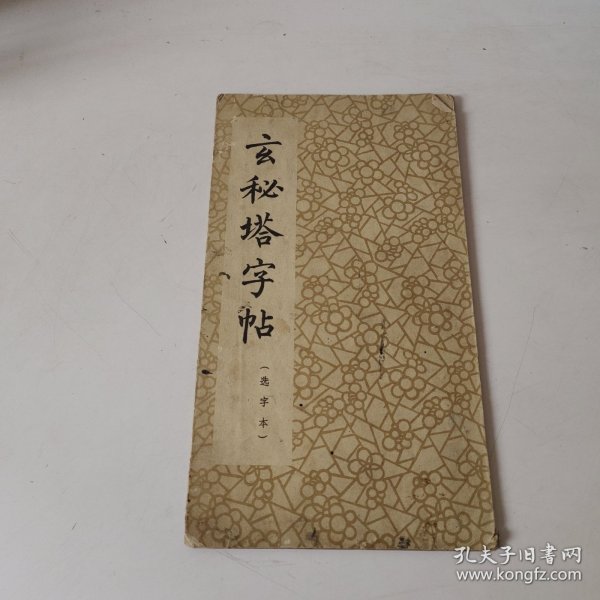 玄秘塔字帖
（选字本）
孔夫子旧書网
www.kongfz.com